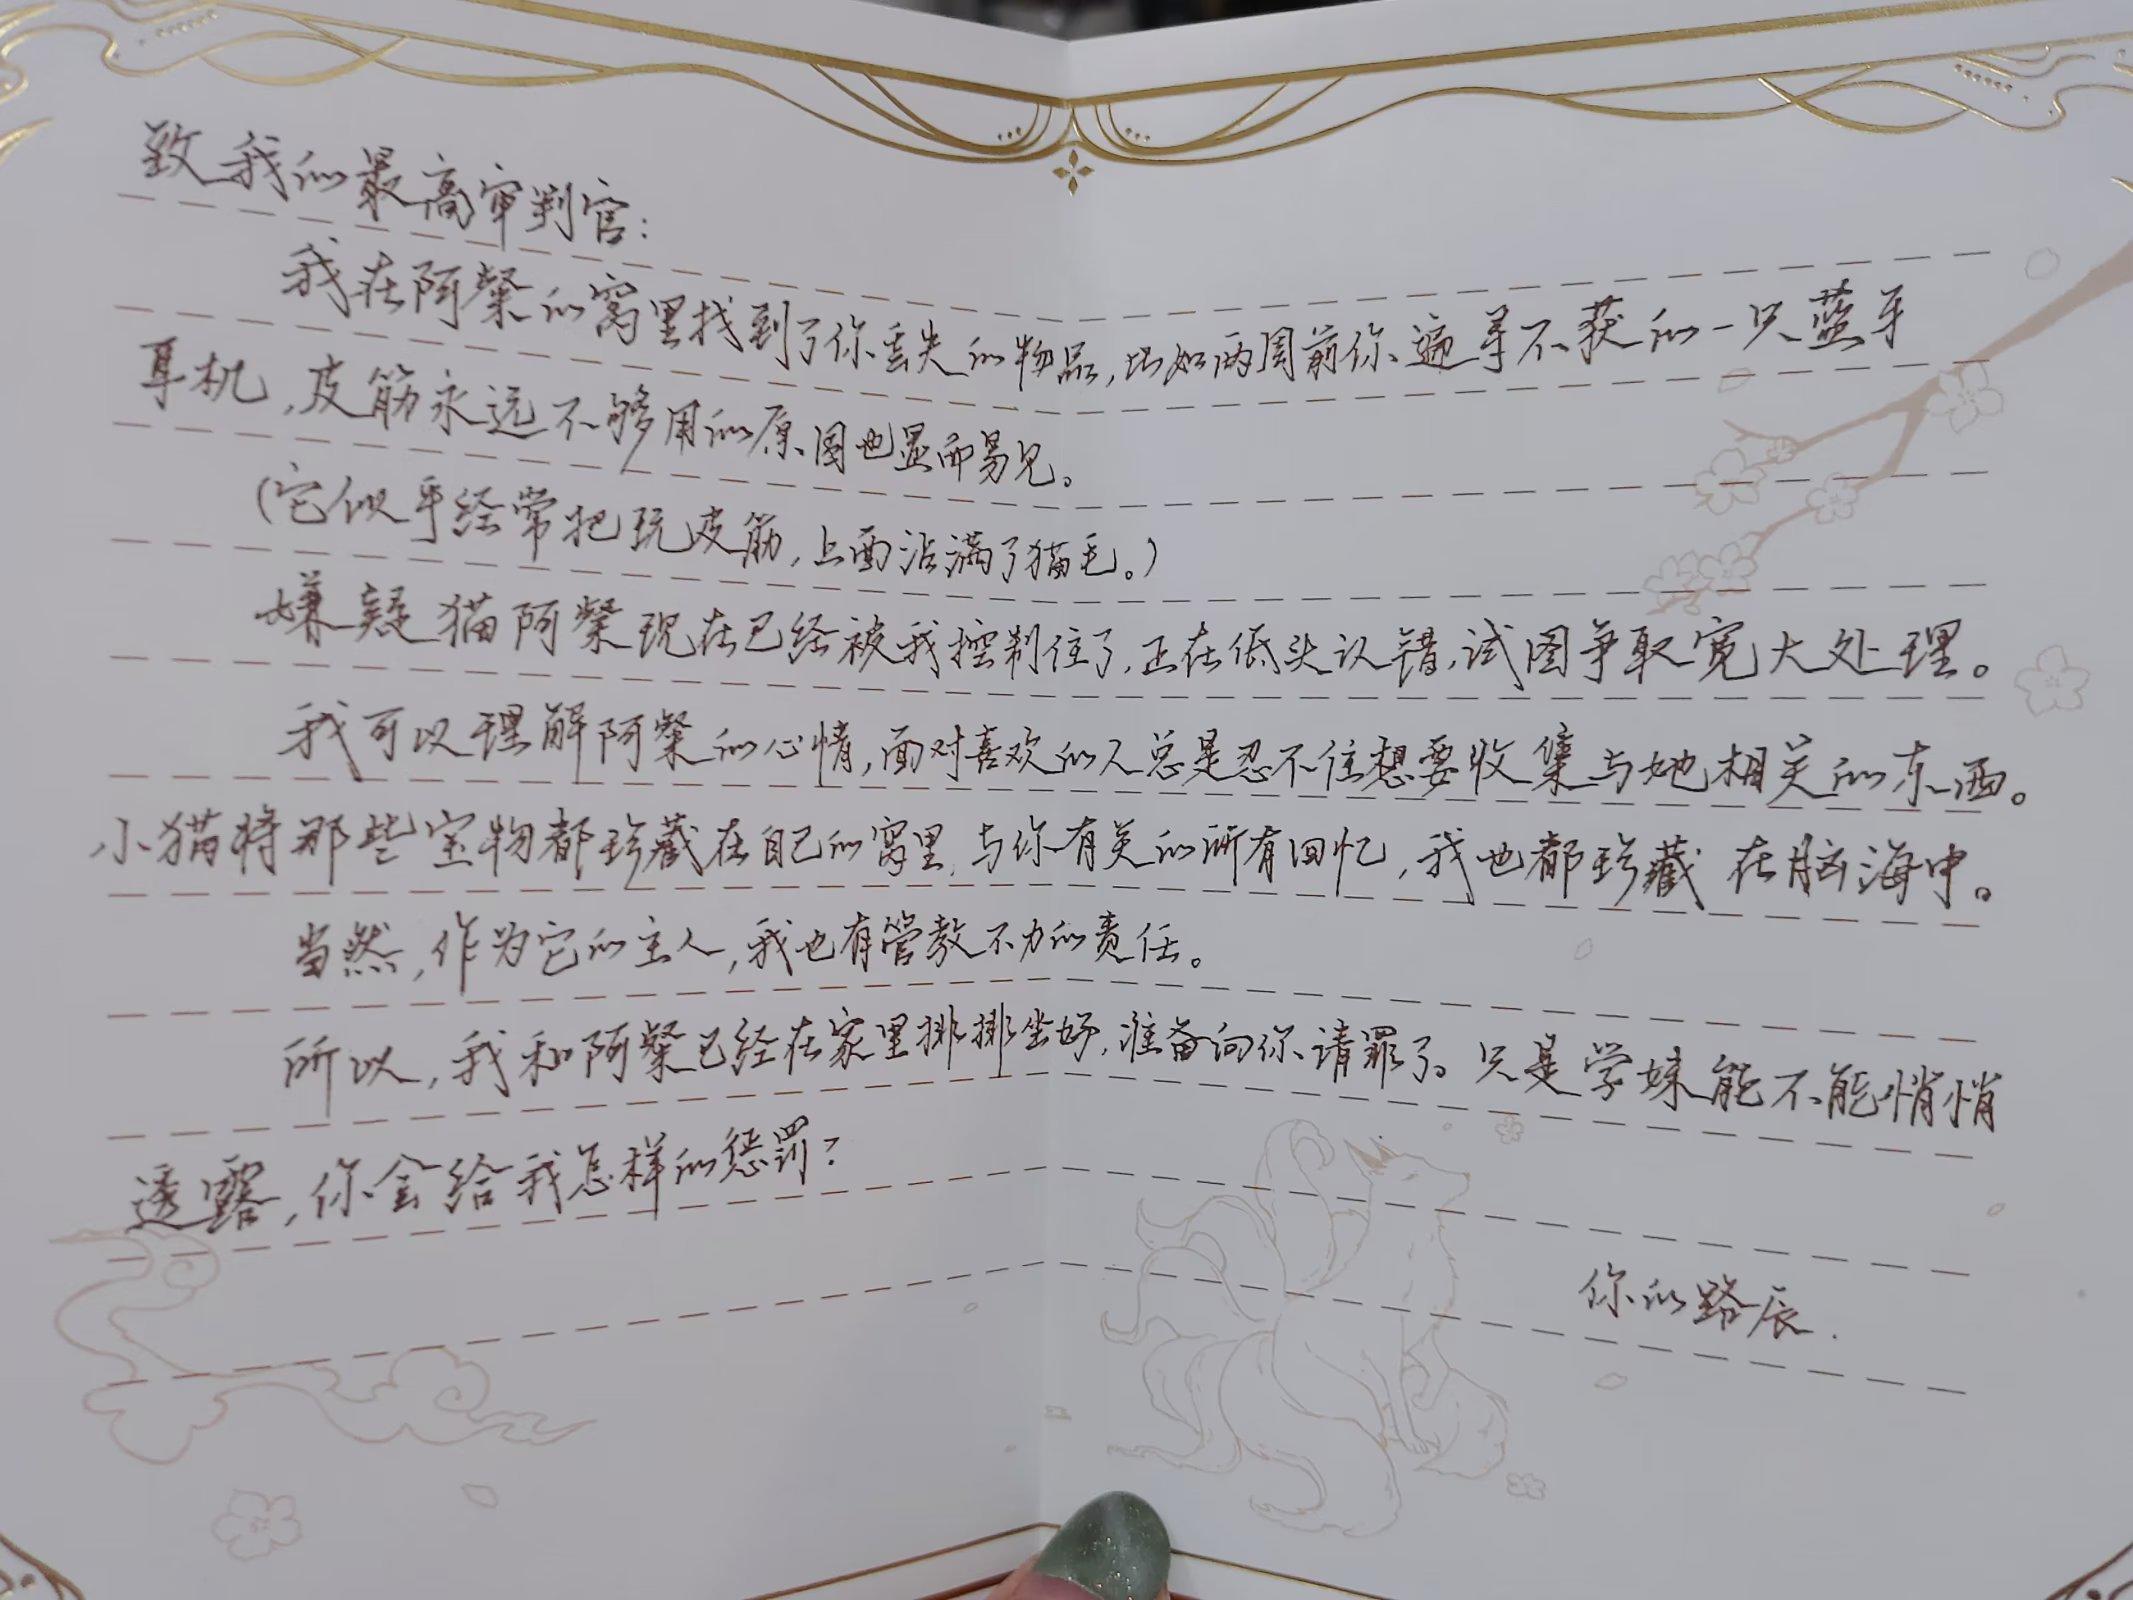 致我的最高审判官：
我在阿粲的窝里找到了你丢失的物品，比如两周前你遍寻不获的一只蓝牙
耳机，皮筋永远不够用的原因也显而易见。
（它似乎经常把玩皮筋，上面沾满了猫毛。）
嫌疑猫阿粲现在已经被我控制住了，正在低头认错，试图争取宽大处理。
我可以理解阿粲的心情，面对喜欢的人总是忍不住想要收集与她相关的东西。
小猫将那些宝物都珍藏在自己的窝里，与你有关的所有回忆，我也都珍藏在脑海中。
当然，作为它的主人，我也有管教不力的责任。
所以，我和阿粲已经在家里排排坐好，准备向你请罪了。只是学妹能不能悄悄
透露，你会给我怎样的惩罚？
你的路辰.